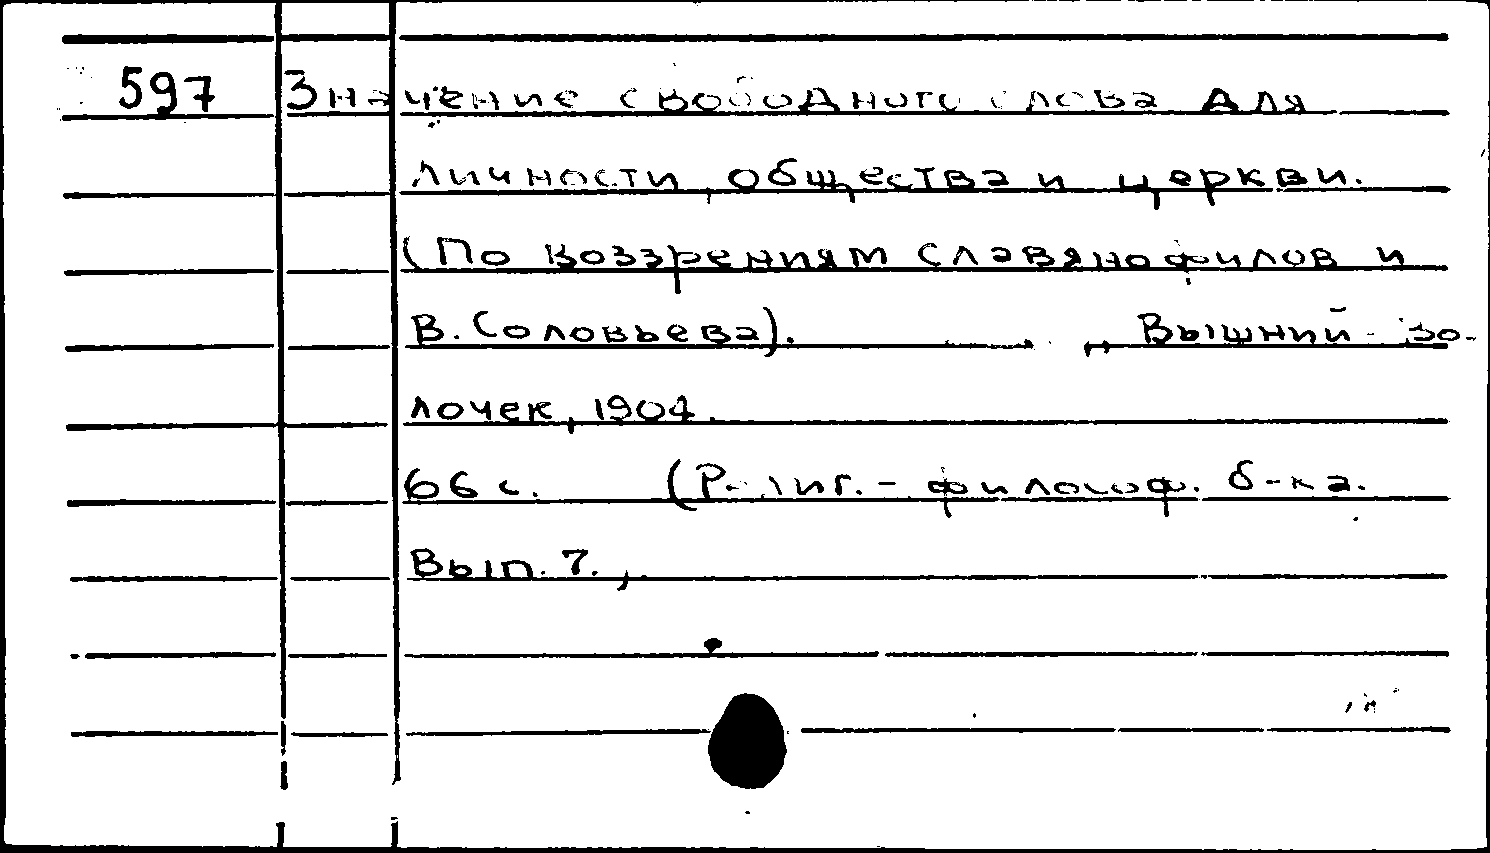 597 Значение свободного слова для
личности, общества и церкви.
(По воззрениям славянофилов и
В. Соловьева). Вышний-Во-
лочек, 1904.
66 с. (Религ.-философ. б-ка.
Вып. 7.,